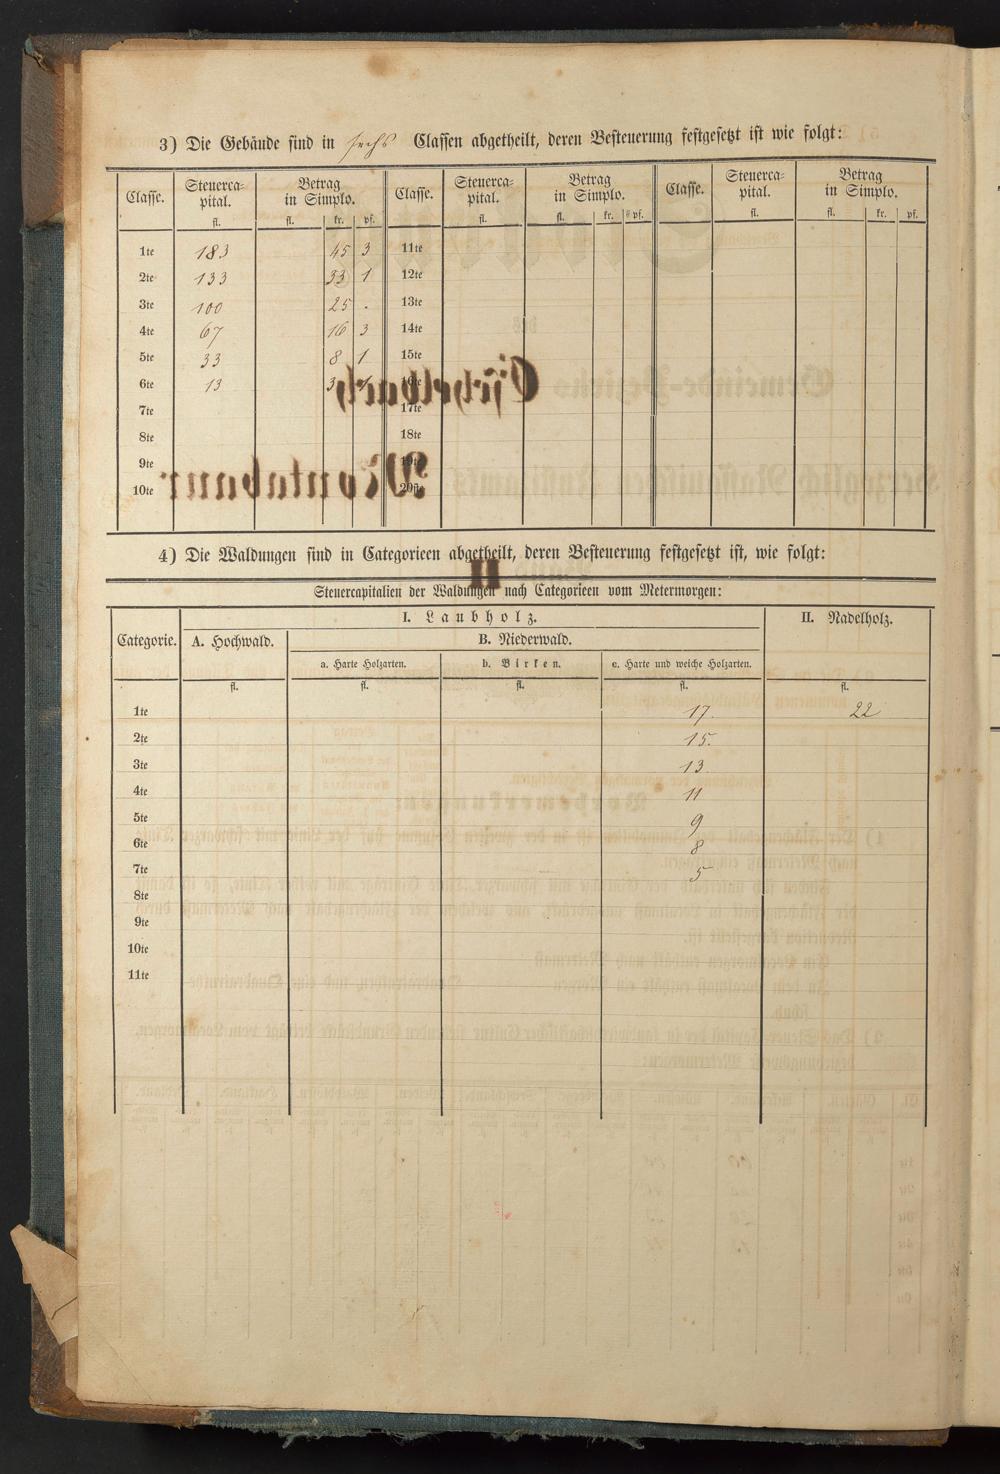 3) Die Gebäude sind in sechs Classen abgetheilt, deren Besteuerung festgesetzt ist wie folgt:
Classe. Steuerca- Betrag Classe. Steuerca- Betrag Classe. Steuerca- Betrag
pital. in Simplo. pital. in Simplo. pital. in Simplo.
fl. fl. kr. pf. fl. fl. kr. pf. fl. fl. kr. pf.
1te 183 45 3 11te
2te 133 33 1 12te
3te 100 25 . 13te
4te 67 16 3 14te
5te 33 8 1 15te
6te 13 3 1 16te
7te 17te
8te 18te
9te 19te
10te 20te
4) Die Waldungen sind in Categorieen abgetheilt, deren Besteuerung festgesetzt ist, wie folgt:
Steuercapitalien der Waldungen nach Categorieen vom Metermorgen:
Categorie. I. Laubholz. II. Nadelholz.
A. Hochwald. B. Niederwald.
a. Harte Holzarten. b. Birken. c. Harte und weiche Holzarten.
fl. fl. fl. fl. fl.
1te 17. 22
2te 15.
3te 13.
4te 11
5te 9
6te 8
7te 5
8te
9te
10te
11te